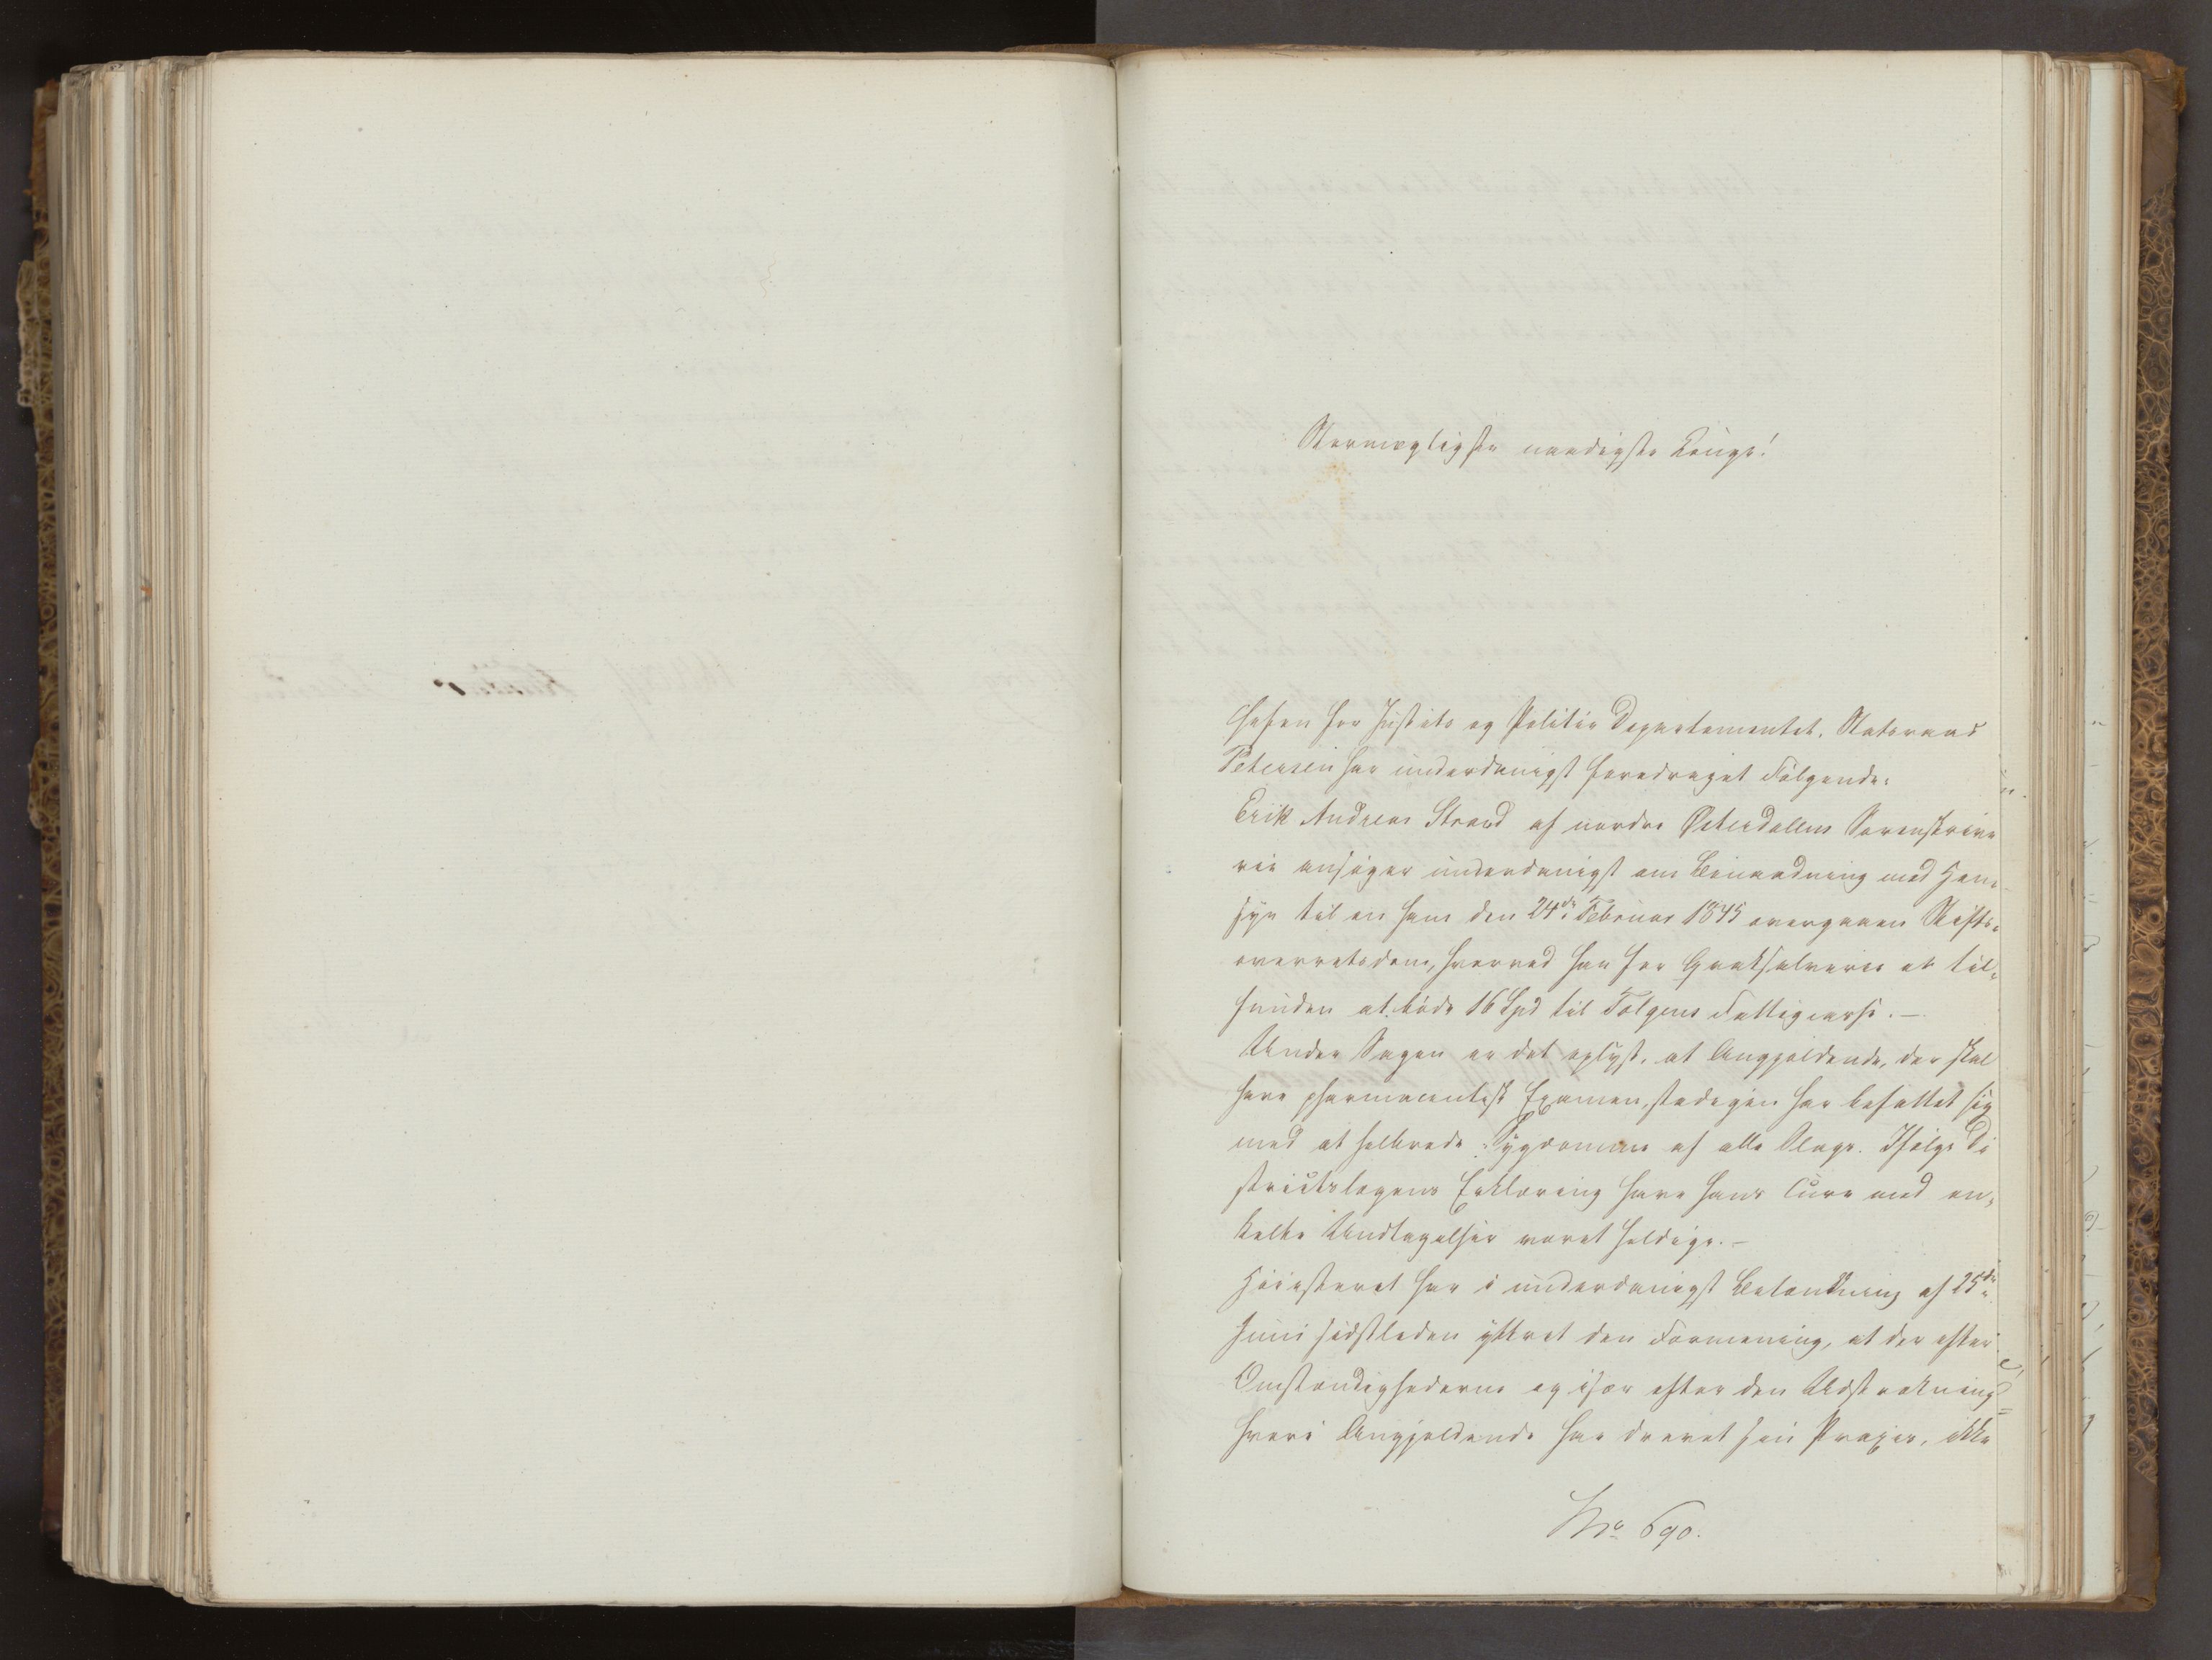 Stormægtigste naadigste Konge!
Chefen for Justits og Politie Departementet, Statsraad
Petersen har underdanigst foredraget Følgende:
Erik Andreas Strand af nordre Østerdallens Sorenskrive
rie ansøger underdanigst om Benaadning med Hen-
syn til en ham den 24de Februar 1845 overgaaen Stifts-
overretsdom, hvorved han for Qvaksalverie er til-
funden at bøde 16 Spd til Tolgens Fattigcasse. —
Under Sagen er det oplyst, at Angjeldende, der skal
have pharmaceutisk Examen, stadigen har befattet sig
med at helbrede Sygdomme af alle Slags. Ifølge Di
strictslægens Erklæring have hans Cure med en-
kelte Undtagelser været heldige. —
Høiesteret har i underdanigst Betænkning af 25de
Juni sidstleden yttret den Formening, at der efter
Omstændighederne og især efter den Udstrækning
hvori Angjeldende har drevet sin Praxis, ikke
No 690.